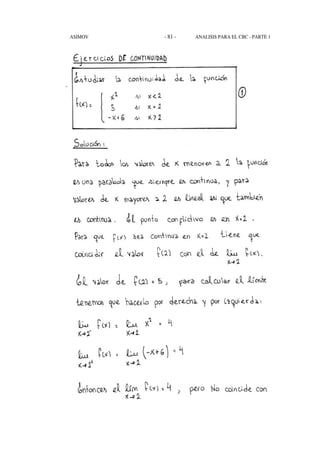 ASIMOV - 81 - ANALISIS PARA EL CBC - PARTE 1
Ejercicios DE CONTINUIDAD
Estudiar la continuidad de la función
f(x) = { x² si x<2
5 si x=2
-x+6 si x>2
①
Solución:
Para todos los valores de x menores a 2 la función
es una parábola que siempre es continua, y para
valores de x mayores a 2 es lineal asi que también
es continua. El punto conflictivo es en x=2.
Para que f(x) sea continua en x=2 tiene que
coincidir el valor f(2) con el de lim f(x).
x→2
El valor de f(2) = 5, para calcular el límite
tenemos que hacerlo por derecha y por izquierda:
lim f(x) = lim x² = 4
x→2⁻ x→2
lim f(x) = lim (-x+6) = 4
x→2⁺ x→2
Entonces el lím f(x) = 4, pero No coincide con
x→2